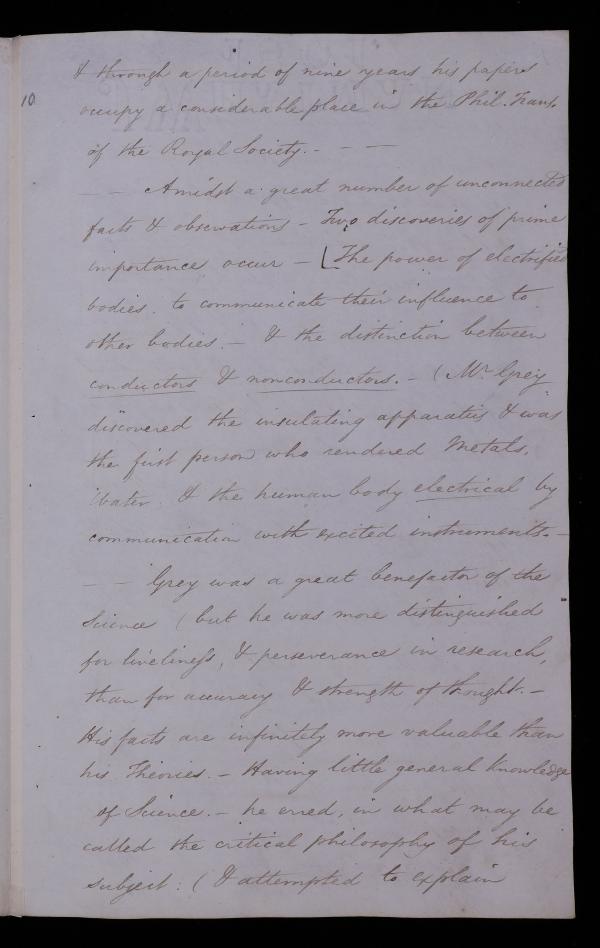 & through a period of nine years his papers
10
occupy a considerable place in the Phil. Trans.
of the Royal Society. - - —
— — Amidst a great number of unconnected
facts & observations - Two discoveries of prime
importance occur - [The power of electrified
bodies. to communicate their influence to
other bodies. - & the distinction between
conductors & nonconductors. - (Mr. Grey
discovered the insulating apparatus & was
the first person who rendered Metals.
Water. & the human body electrical by
communication with excited instruments. -
— — Grey was a great benefactor of the
Science (but he was more distinguished
for liveliness, & perseverance in research,
than for accuracy & strength of thought. -
His facts are infinitely more valuable than
his Theories. - Having little general knowledge
of Science. - he erred, in what may be
called the critical philosophy of his
subject: (& attempted to explain